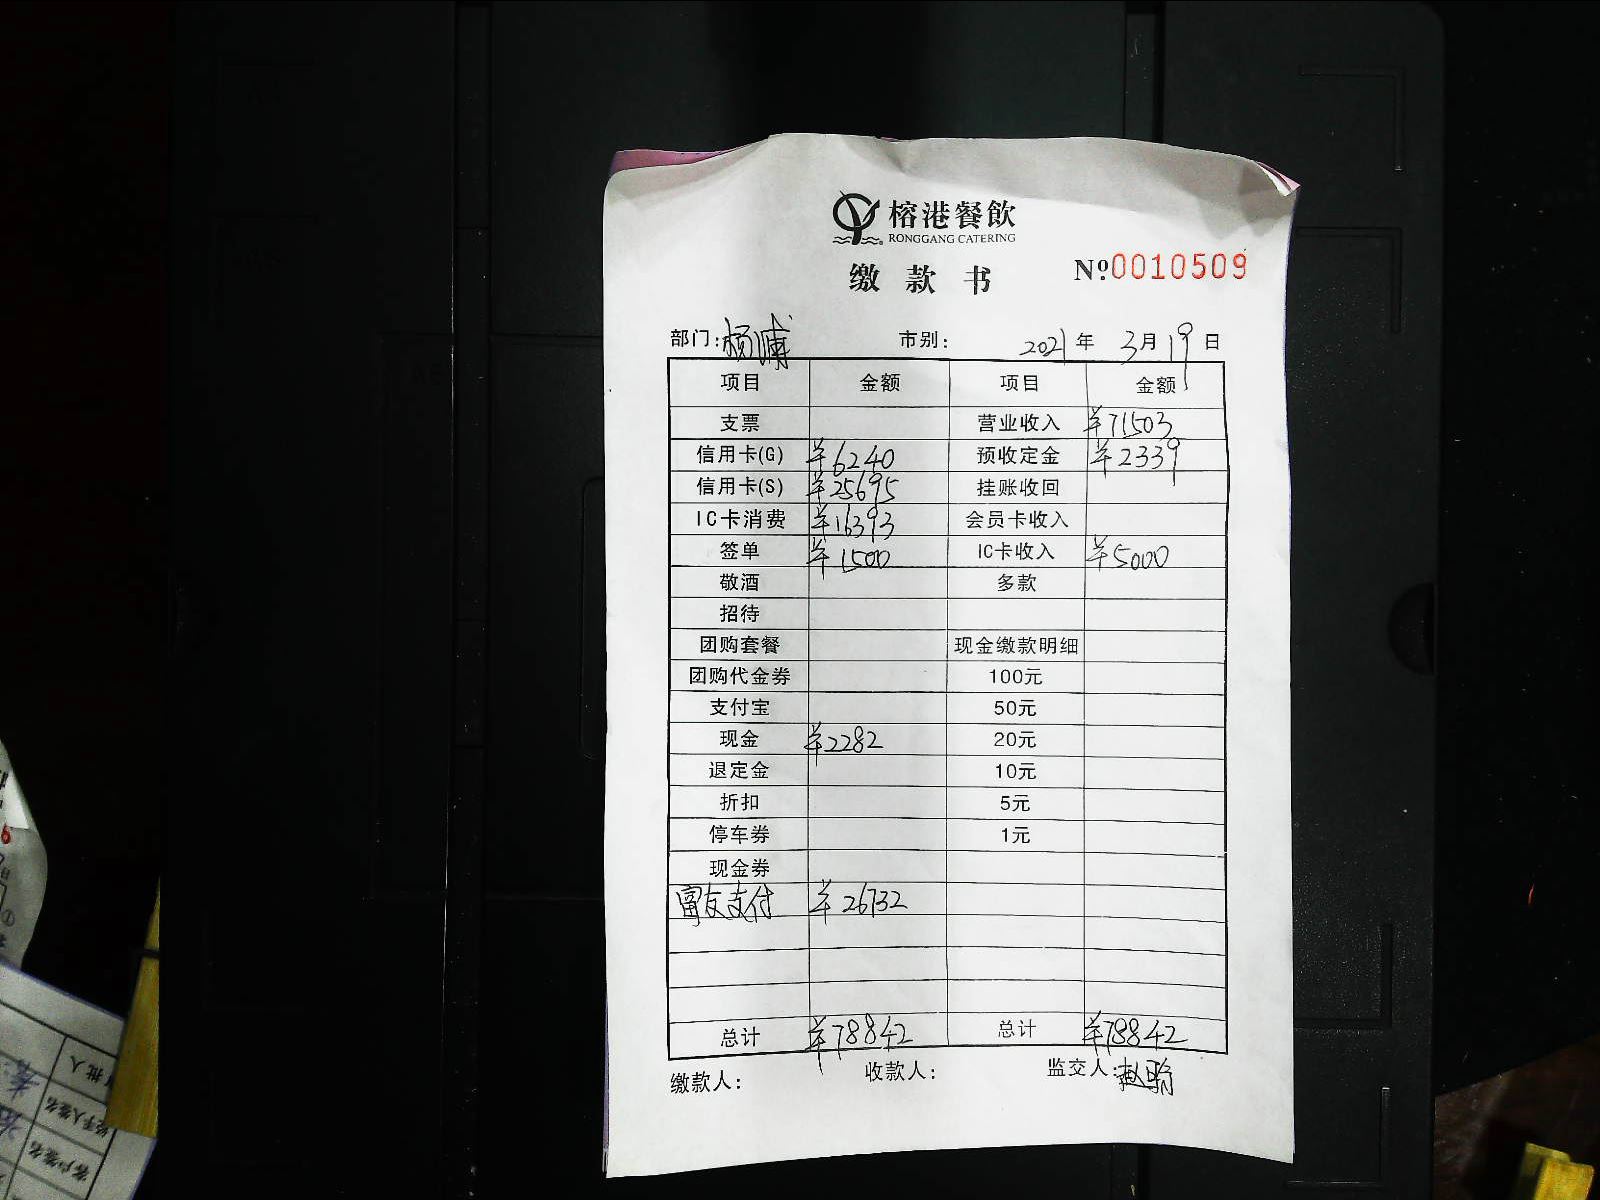 榕港餐飲
RONGGANG CATERING
缴款书 №0010509
部门:杨浦 市别: 2021年3月19日
项目 金额 项目 金额
支票 营业收入 ¥71503
信用卡(G) ¥6240 预收定金 ¥2339
信用卡(S) ¥25695 挂账收回
IC卡消费 ¥16393 会员卡收入
签单 ¥1500 IC卡收入 ¥5000
敬酒 多款
招待
团购套餐 现金缴款明细
团购代金券 100元
支付宝 50元
现金 ¥2282 20元
退定金 10元
折扣 5元
停车券 1元
现金券
富友支付 ¥26732
总计 ¥78842 总计 ¥78842
缴款人: 收款人: 监交人:
客户签名
经手人签名
批人